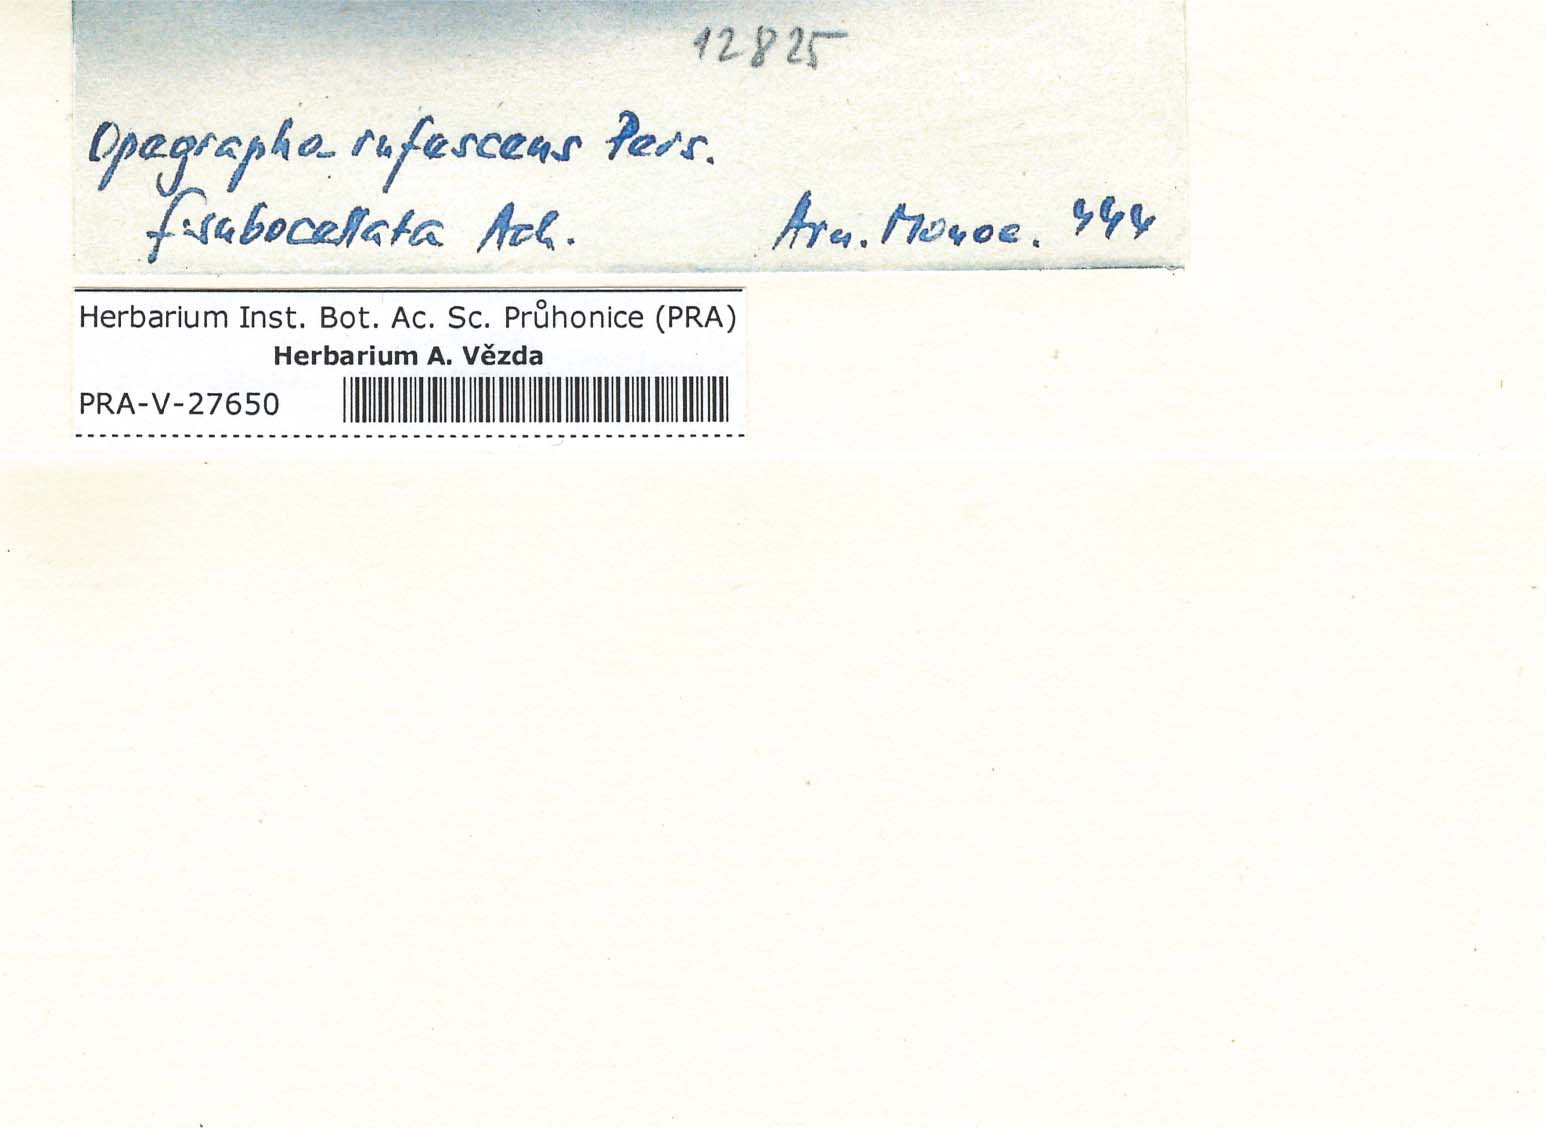 12825
Opegrapha rufescens Pers.
f. subocellata Ach. Arn. Monac. 444
Herbarium Inst. Bot. Ac. Sc. Průhonice (PRA)
Herbarium A. Vězda
PRA-V-27650